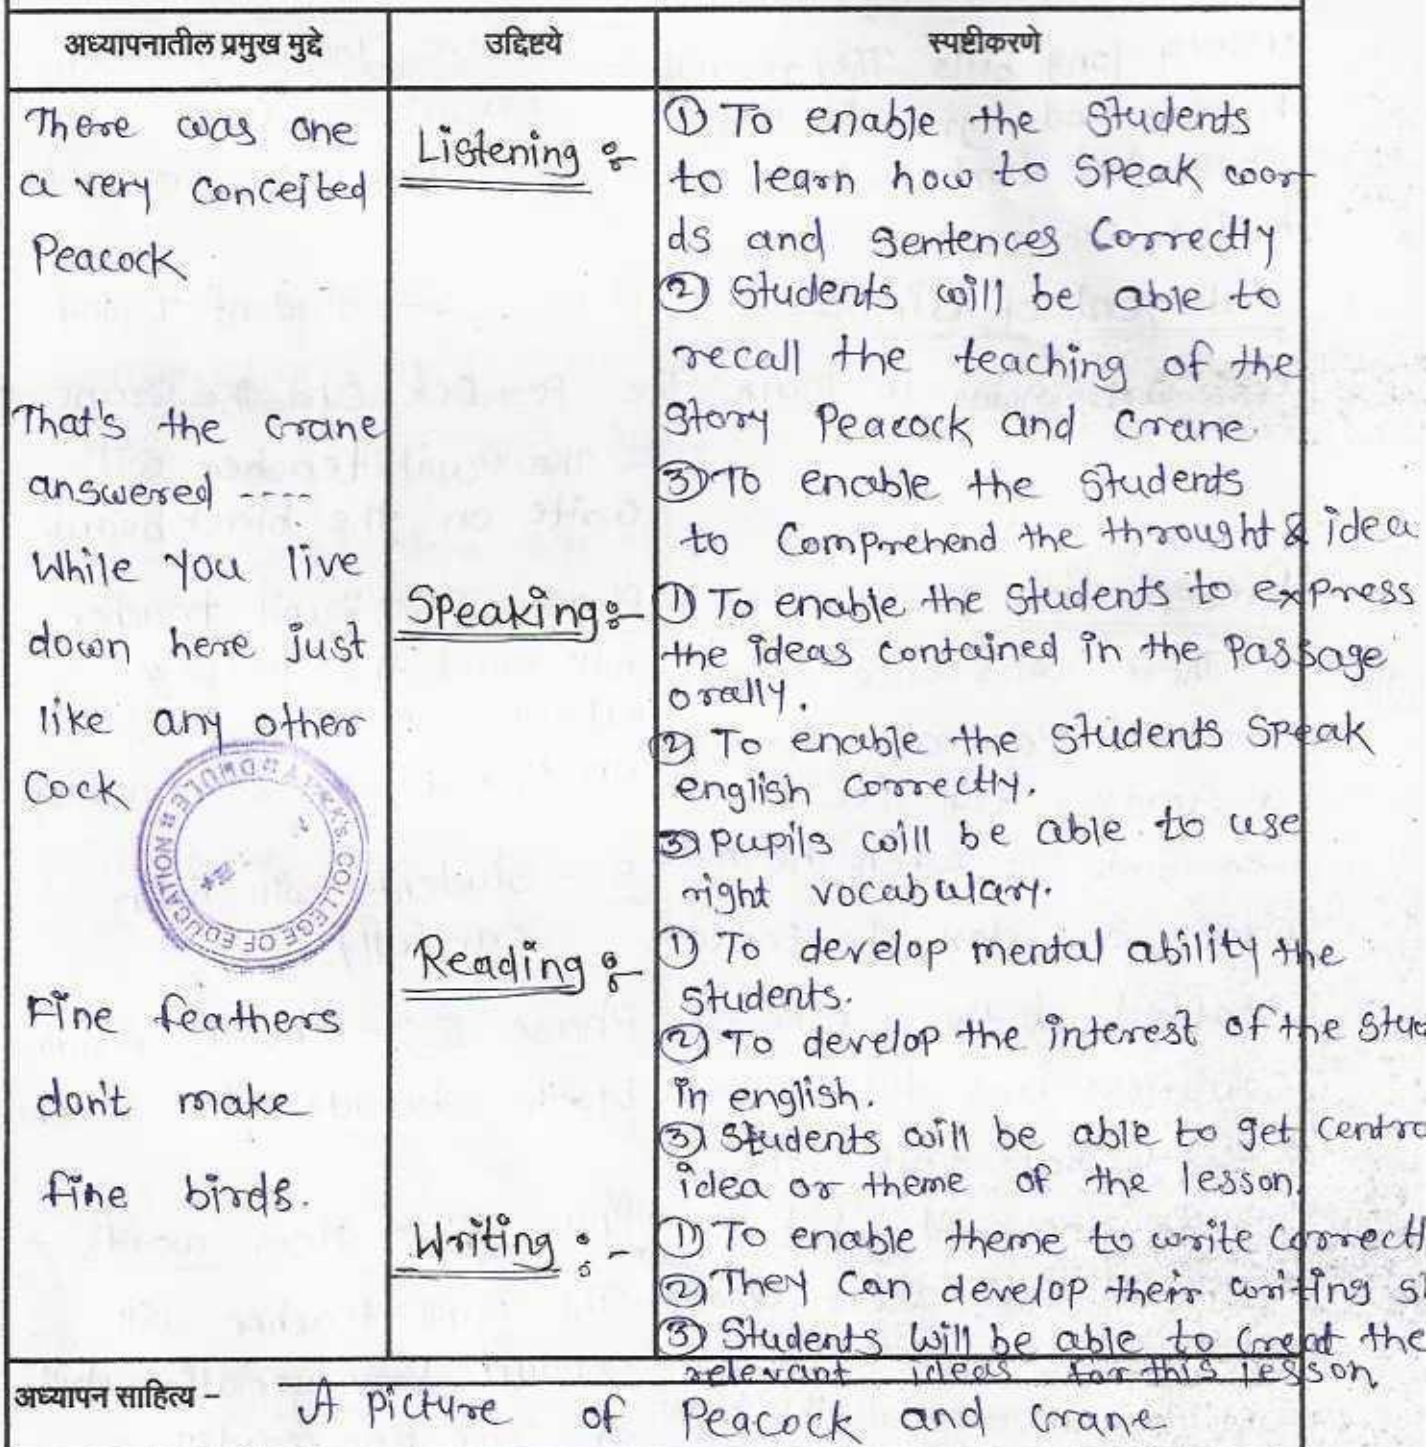 अध्यापनातील प्रमुख मुद्दे
There was one
a very conceited
Peacock
That's the crane
answered ----
While you live
down here just
like any other
Cock
Fine feathers
don't make
fine birds.
उद्दिष्टये
Listening :-
Speaking :-
Reading :-
Writing :-
स्पष्टीकरणे
① To enable the Students
to learn how to Speak wor
ds and sentences Correctly
② Students will be able to
recall the teaching of the
story Peacock and Crane.
③ To enable the Students
to Comprehend the throught & idea
① To enable the Students to express
the ideas contained in the Passage
orally.
② To enable the Students Speak
english correctly.
③ Pupils will be able to use
right vocabulary.
① To develop mental ability the
students.
② To develop the interest of the stu
in english.
③ Students will be able to get centra
idea or theme of the lesson.
① To enable theme to write correctl
② They Can develop their writing s
③ Students will be able to Creat the
relevant ideas for this lesson
COLLEGE OF EDUCATION
अध्यापन साहित्य - A Picture of Peacock and crane